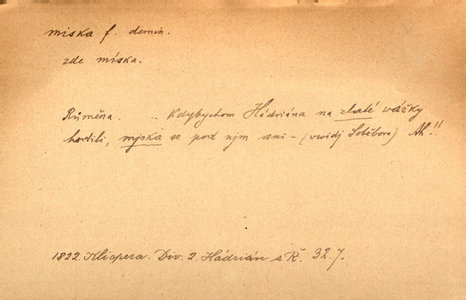 miska f. demin.
zde míska.
Růměna. .. Kdybychom Hádriána na zlaté wážky
hodili, mjska se pod njm ani – (uwidj Soběbora) Ah!!
1822. Klicpera. Div. 2. Hádrián s Ř. 32.7.